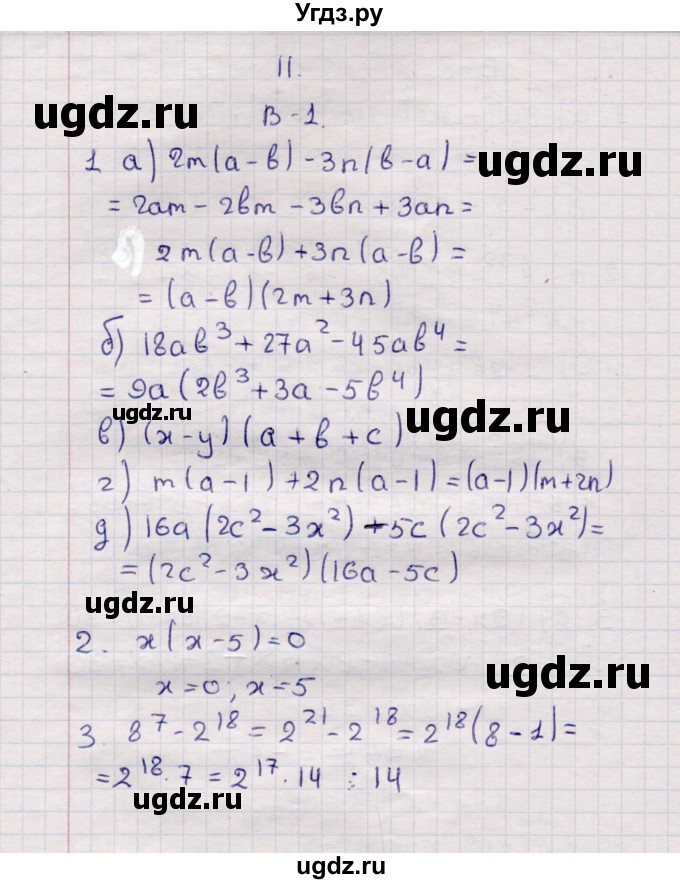 Угдз.ру
11.
ugdz.ru
В-1.
1 а) 2m(a-b) - 3n(b-a) =
ugdz.ru
= 2am - 2bm - 3bn + 3an =
2m(a-b) + 3n(a-b) =
= (a-b)(2m+3n)
б) 18ab³ + 27a² - 45ab⁴ =
= 9a(2b³ + 3a - 5b⁴)
ugdz.ru
ugdz.ru
в) (x-y)(a+b+c)
г) m(a-1) + 2n(a-1) = (a-1)(m+2n)
д) 16a(2c² - 3x²) - 5c(2c² - 3x²) =
= (2c² - 3x²)(16a - 5c)
ugdz.ru
2. x(x-5) = 0
ugdz.ru
x=0; x=5
3. 8⁷ - 2¹⁸ = 2²¹ - 2¹⁸ = 2¹⁸(8-1) =
= 2¹⁸·7 = 2¹⁷·14 ⋮ 14
ugdz.ru
ugdz.ru